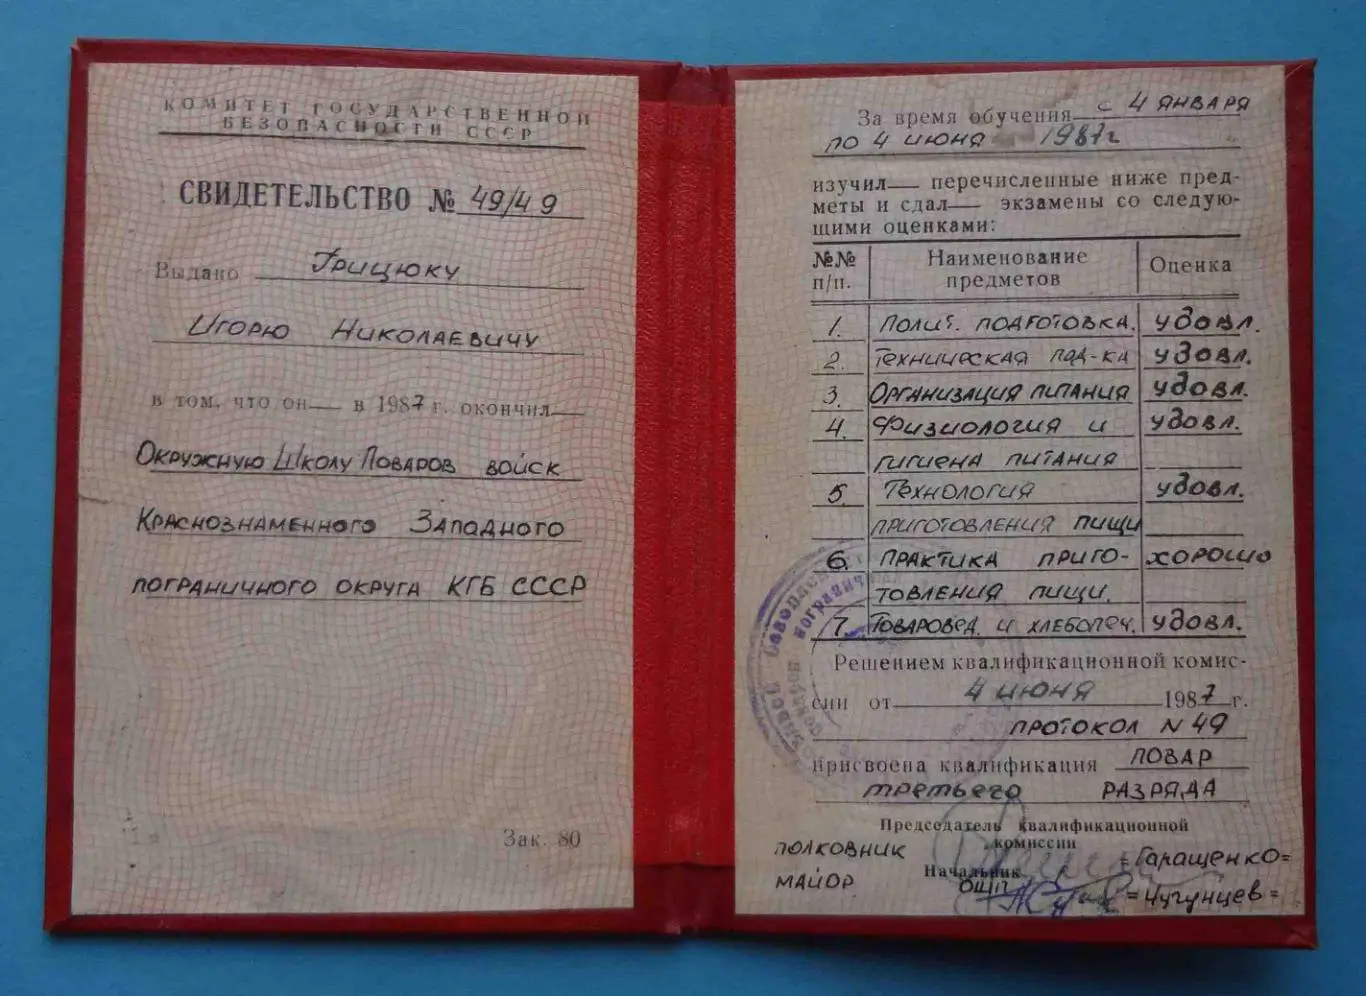 КОМИТЕТ ГОСУДАРСТВЕННОЙ
БЕЗОПАСНОСТИ СССР
СВИДЕТЕЛЬСТВО № 49/49
Выдано Грицюку
Игорю Николаевичу
в том, что он в 1987 г. окончил
Окружную Школу Поваров войск
Краснознаменного Западного
пограничного округа КГБ СССР
Зак. 80
За время обучения с 4 января
по 4 июня 1987г
изучил перечисленные ниже пред-
меты и сдал экзамены со следую-
щими оценками:
№№ п/п. Наименование предметов Оценка
1. Полит. подготовка. удовл.
2. Техническая под-ка удовл.
3. Организация питания удовл.
4. Физиология и удовл.
гигиена питания
5. Технология удовл.
приготовления пищи
6. Практика приго- хорошо
товления пищи.
7. Товаровед. и хлебопеч. удовл.
Решением квалификационной комис-
сии от 4 июня 1987 г.
протокол N 49
присвоена квалификация повар
третьего разряда
Председатель квалификационной
комиссии
полковник =Гаращенко=
Начальник
майор ОШП =Чугунцев=